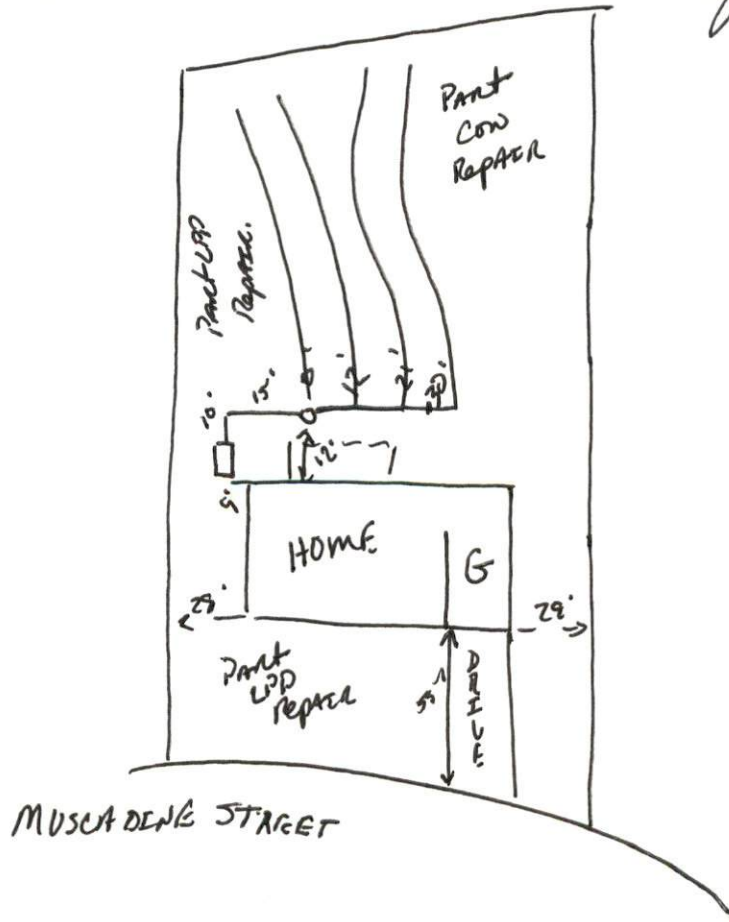 PART
CON
REPAIR
PART LPP
REPAIR.
15'
12'
21'
10'
12'
HOME
G
28'
29'
PART
LPP
REPAIR
55'
DRIVE
MUSCADINE STREET